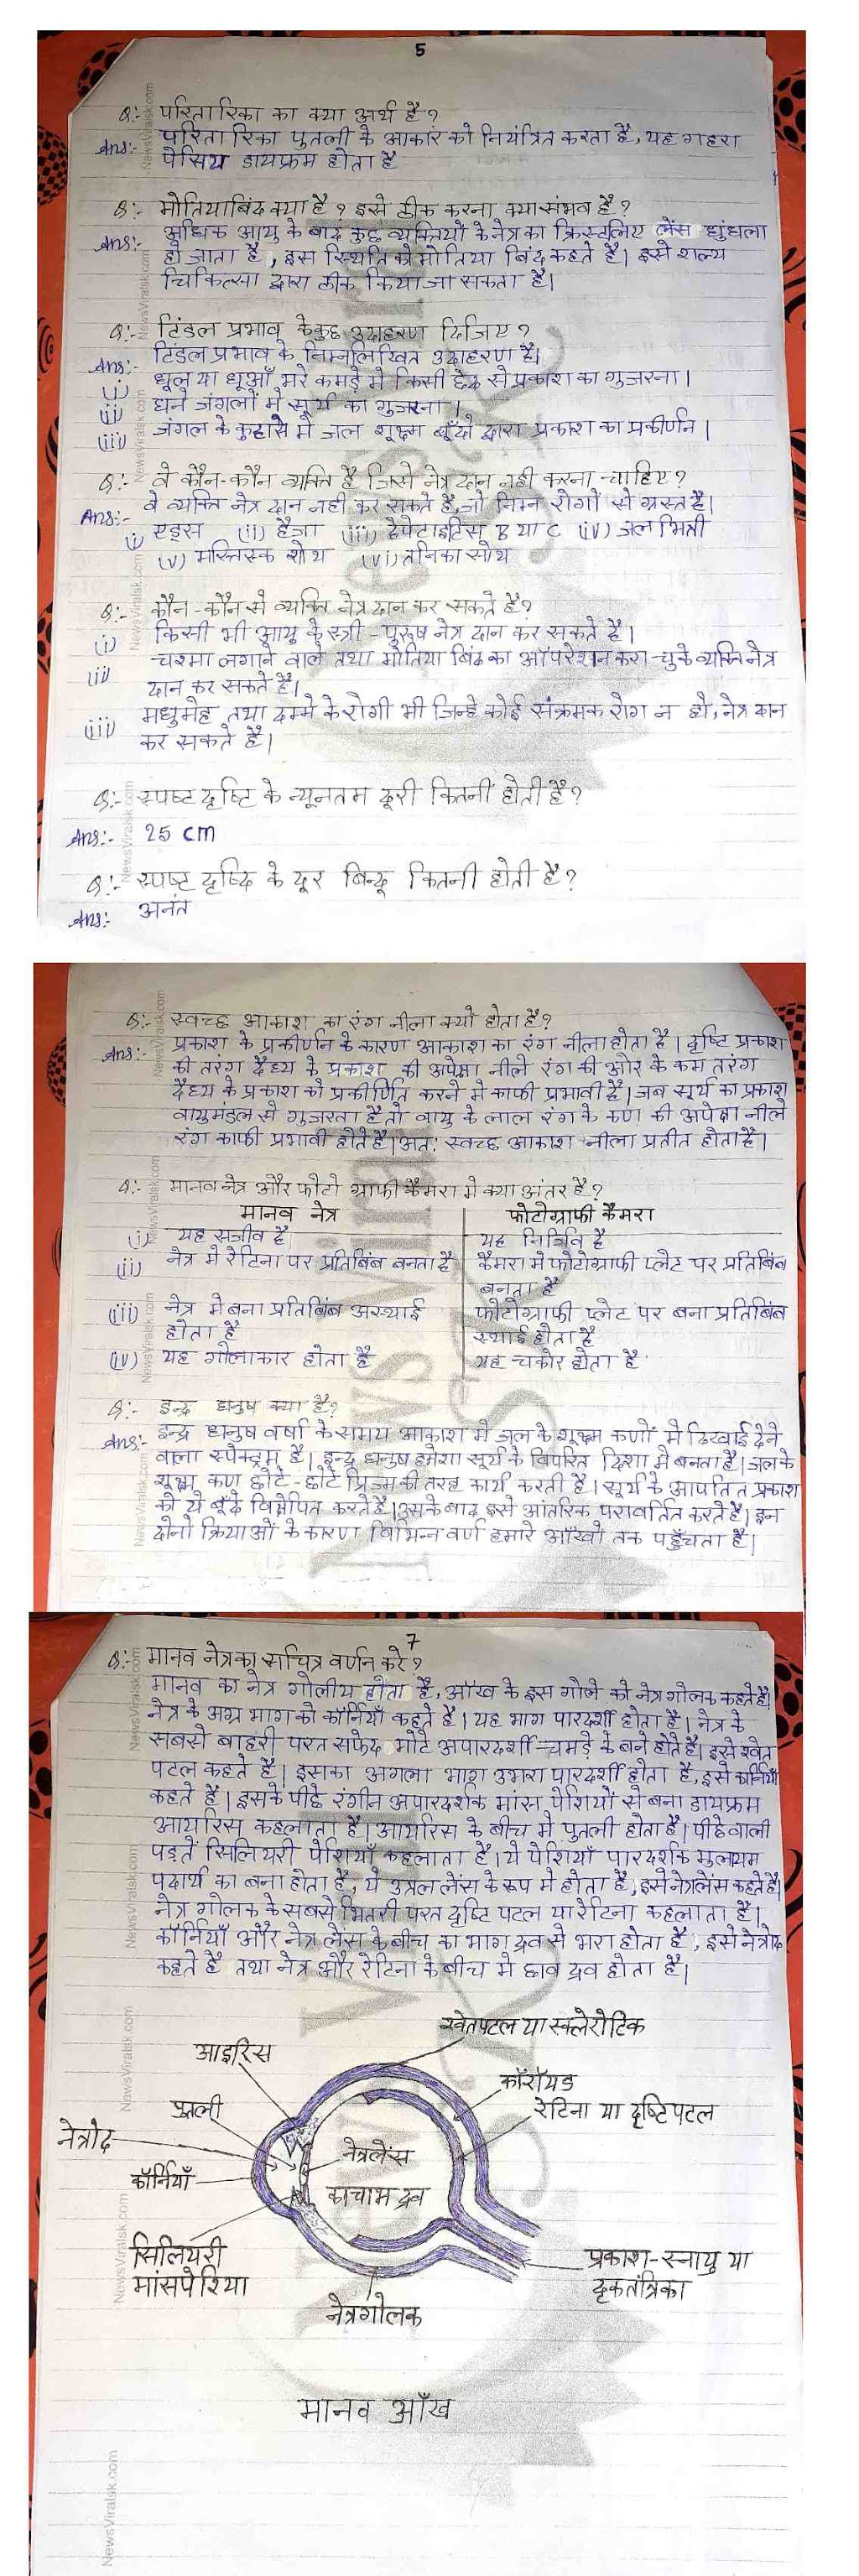 5
Q:- परितारिका का क्या अर्थ है?
Ans:- परितारिका पुतली के आकार को नियंत्रित करता है, यह गहरा
पेसिय डायफ्रम होता है
Q:- मोतियाबिंद क्या है? इसे ठीक करना क्या संभव है?
Ans:- अधिक आयु के बाद कुछ व्यक्तियों के नेत्र का क्रिस्टलिए लेंस धुंधला
हो जाता है, इस स्थिति को मोतिया बिंद कहते है। इसे शल्य
चिकित्सा द्वारा ठीक किया जा सकता है।
Q:- टिंडल प्रभाव के कुछ उदाहरण दिजिए?
Ans:- टिंडल प्रभाव के निम्नलिखित उदाहरण है।
(i) धूल या धूआँ भरे कमड़े मे किसी छेद से प्रकाश का गुजरना।
(ii) घने जंगलों में सूर्य का गुजरना।
(iii) जंगल के कुहासे में जल शूक्ष्म बूँदो द्वारा प्रकाश का प्रकीर्णन।
Q:- वे कौन-कौन व्यक्ति है जिसे नेत्र दान नही करना चाहिए?
Ans:- वे व्यक्ति नेत्र दान नही कर सकते है, जो निम्न रोगों से ग्रस्त है।
(i) एड्स (ii) हैजा (iii) हेपेटाइटिस B या C (iv) जल भिती
(v) मस्तिस्क शोथ (vi) तनिका सोथ
Q:- कौन-कौन से व्यक्ति नेत्र दान कर सकते है?
(i) किसी भी आयु के स्त्री-पुरूष नेत्र दान कर सकते है।
(ii) चश्मा लगाने वाले तथा मोतिया बिंद का ऑपरेशन करा चुके व्यक्ति नेत्र
दान कर सकते है।
(iii) मधुमेह तथा दम्मे के रोगी भी जिन्हे कोई संक्रमक रोग न हो, नेत्र दान
कर सकते है।
Q:- स्पष्ट दृष्टि के न्यूनतम दूरी कितनी होती है?
Ans:- 25 cm
Q:- स्पष्ट दृष्टि के दूर बिन्दू कितनी होती है?
Ans:- अनंत
Q:- स्वच्छ आकाश का रंग नीला क्यों होता है?
Ans:- प्रकाश के प्रकीर्णन के कारण आकाश का रंग नीला होता है। दृष्टि प्रकाश
की तरंग दैध्य के प्रकाश की अपेक्षा नीले रंग की ओर के कम तरंग
दैध्य के प्रकाश को प्रकीर्णित करने मे काफी प्रभावी है। जब सूर्य का प्रकाश
वायुमंडल से गुजरता है तो वायु के लाल रंग के कण की अपेक्षा नीले
रंग काफी प्रभावी होते है। अतः स्वच्छ आकाश नीला प्रतीत होता है।
Q:- मानव नेत्र और फोटो ग्राफी कैमरा मे क्या अंतर है?
मानव नेत्र फोटोग्राफी कैमरा
(i) यह सजीव है यह निर्जिव है
(ii) नेत्र मे रेटिना पर प्रतिबिंब बनता है कैमरा मे फोटोग्राफी प्लेट पर प्रतिबिंब
बनता है
(iii) नेत्र मे बना प्रतिबिंब अस्थाई फोटोग्राफी प्लेट पर बना प्रतिबिंब
होता है स्थाई होता है
(iv) यह गोलाकार होता है यह चकोर होता है
Q:- इन्द्र धनुष क्या है?
Ans:- इन्द्र धनुष वर्षा के समय आकाश मे जल के शूक्ष्म कणों मे दिखाई देने
वाला स्पेक्ट्रम है। इन्द्र धनुष हमेशा सूर्य के विपरित दिशा मे बनता है। जल के
शूक्ष्म कण छोटे-छोटे प्रिज्म की तरह कार्य करती है। सूर्य के आपतित प्रकाश
को ये बूँदे विक्षेपित करते है। उसके बाद इसे आंतरिक परावर्तित करते है। इन
दोनो क्रियाओं के कारण विभिन्न वर्ण हमारे आँखो तक पहुँचता है।
7
Q:- मानव नेत्र का सचित्र वर्णन करे?
मानव का नेत्र गोलीय होता है, आँख के इस गोले को नेत्र गोलक कहते है।
नेत्र के अग्र भाग को कॉर्नियाँ कहते है। यह भाग पारदर्शी होता है। नेत्र के
सबसे बाहरी परत सफेद मोटे अपारदर्शी चमड़े के बने होते है। इसे श्वेत
पटल कहते है। इसका अगला भाग उभरा पारदर्शी होता है, इसे कॉर्नियाँ
कहते है। इसके पीछे रंगीन अपारदर्शक मांस पेशियों से बना डायफ्रम
आयरिस कहलाता है। आयरिस के बीच मे पुतली होता है। पीछे वाली
पड़तें सिलियरी पेशियाँ कहलाता है। ये पेशियाँ पारदर्शक मुलायम
पदार्थ का बना होता है, ये उत्तल लेंस के रूप मे होता है, इसे नेत्र लेंस कहते है।
नेत्र गोलक के सबसे भितरी परत दृष्टि पटल या रेटिना कहलाता है।
कॉर्नियाँ और नेत्र लेंस के बीच का भाग द्रव से भरा होता है, इसे नेत्रोद
कहते है तथा नेत्र और रेटिना के बीच मे छाव द्रव होता है।
श्वेतपटल या स्क्लेरोटिक
आइरिस
कॉरॉयड
पुतली
रेटिना या दृष्टिपटल
नेत्रोद
नेत्रलेंस
कॉर्नियाँ
काचाभ द्रव
सिलियरी
मांसपेशिया
प्रकाश-स्नायु या
दृकतंत्रिका
नेत्रगोलक
मानव आँख
NewsViralsk.com